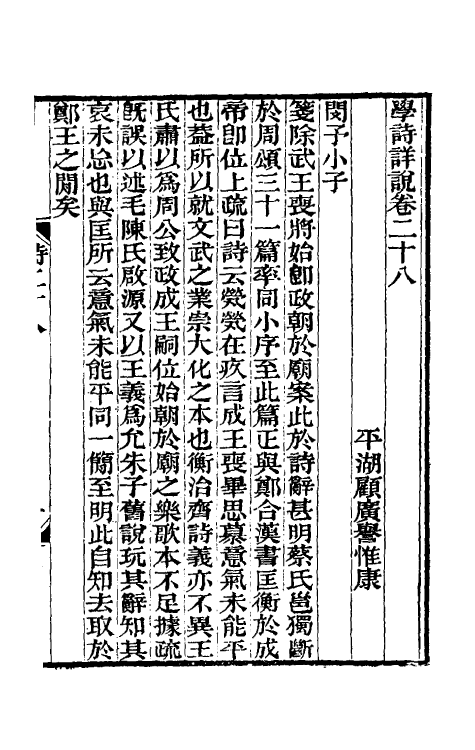 學詩詳說卷二十八
平湖顧廣譽惟康
閔予小子
箋除武王喪將始卽政朝於廟案此於詩辭甚明蔡氏邕獨斷
於周頌三十一篇率同小序至此篇正與鄭合漢書匡衡於成
帝卽位上疏曰詩云煢煢在疚言成王喪畢思慕意氣未能平
也葢所以就文武之業崇大化之本也衡治齊詩義亦不異王
氏肅以爲周公致政成王嗣位始朝於廟之樂歌本不足據疏
旣誤以述毛陳氏啟源又以王義爲允朱子舊說玩其辭知其
哀未忘也與匡所云意氣未能平同一簡至明此自知去取於
鄭王之閒矣
詩二十八